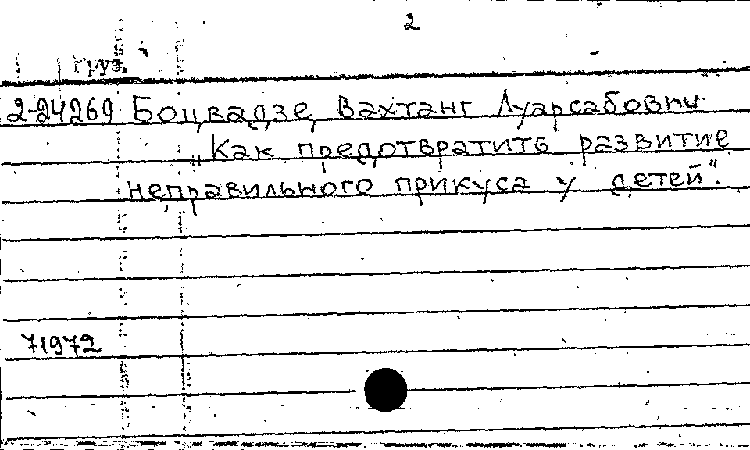 2
Груз.
2-24269 Боцвадзе, Вахтанг Луарсабович
„Как предотвратить развитие
неправильного прикуса у детей".
71972